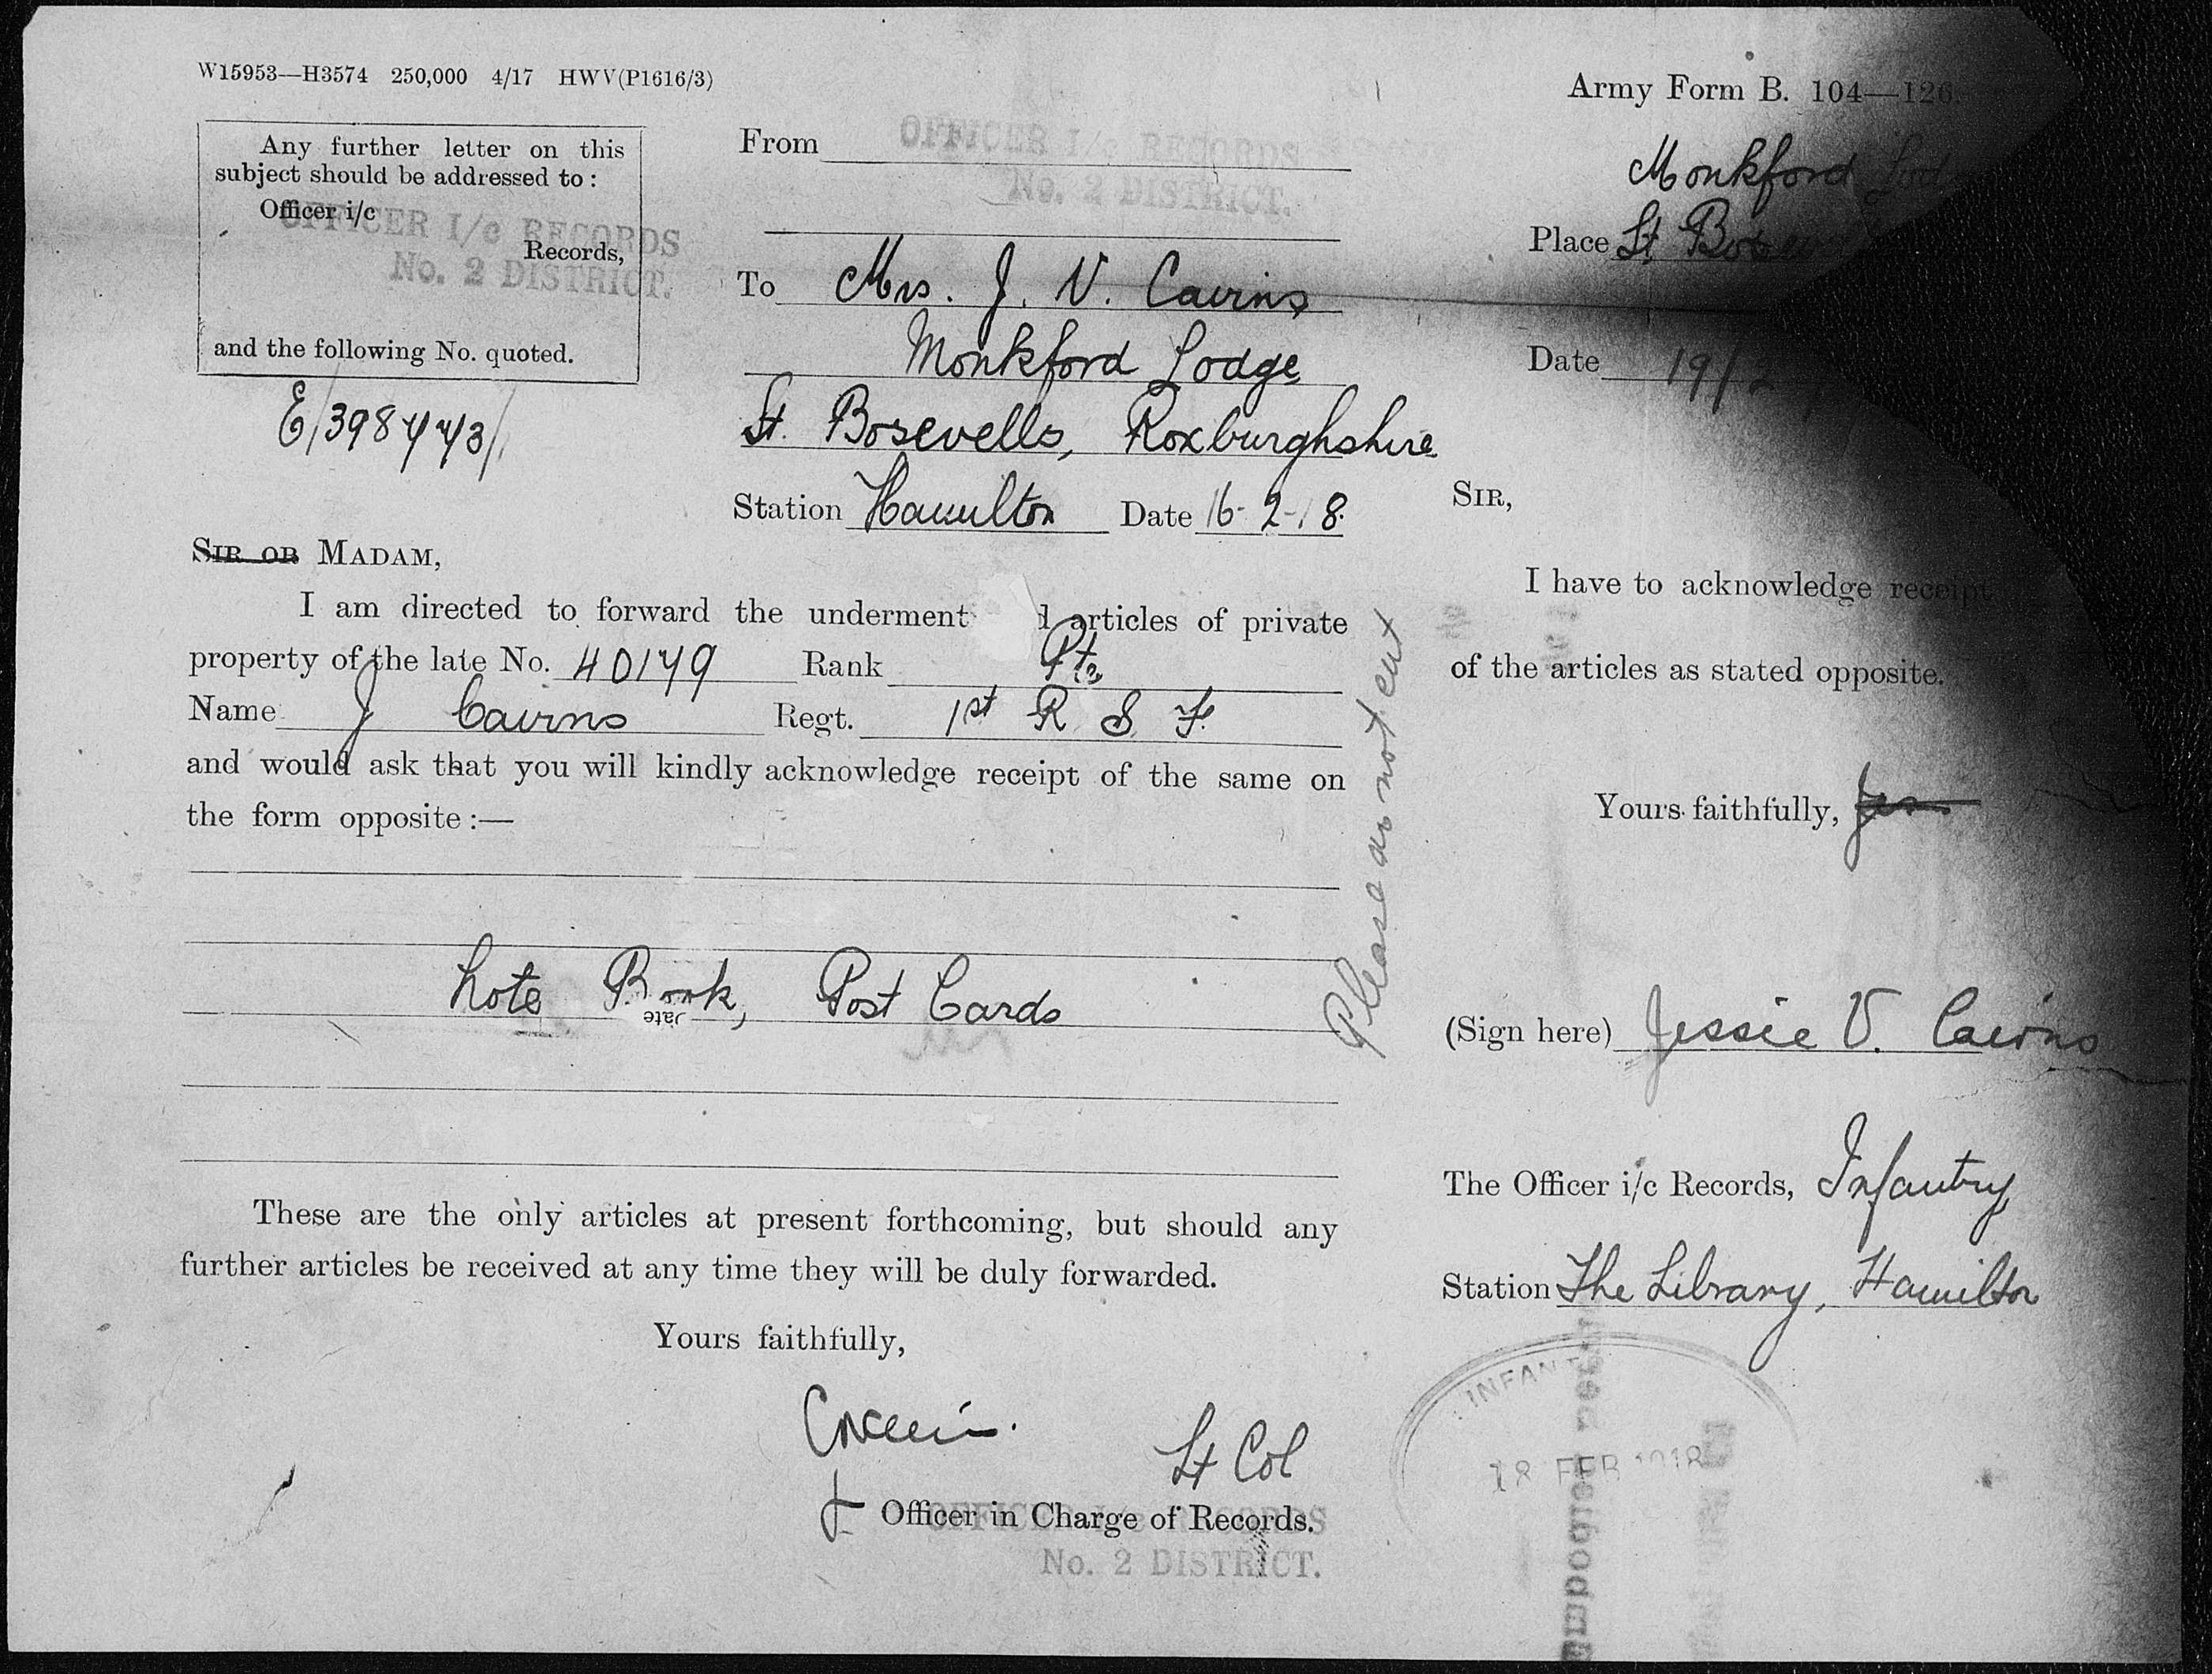 W15953—H3574 250,000 4/17 HWV(P1616/3)
Any further letter on this
subject should be addressed to:
Officer i/c
OFFICER I/c RECORDS
Records,
No. 2 DISTRICT.
and the following No. quoted.
E/398443/
From
OFFICER I/c RECORDS
No. 2 DISTRICT.
To Mrs. J. V. Cairns
Monkford Lodge
St. Boswells, Roxburghshire
Station Hamilton Date 16-2-18.
SIR OR MADAM,
I am directed to forward the underment d articles of private
property of the late No. 40149 Rank Pte
Name J Cairns Regt. 1st R S F.
and would ask that you will kindly acknowledge receipt of the same on
the form opposite:—
Note Book, Post Cards
Date
These are the only articles at present forthcoming, but should any
further articles be received at any time they will be duly forwarded.
Yours faithfully,
Lt Col
Officer in Charge of Records.
OFFICER I/c RECORDS
No. 2 DISTRICT.
Please do not cut
Army Form B. 104—126.
Monkford Lod
Place St. Bos
Date 19/2
SIR,
I have to acknowledge receipt
of the articles as stated opposite.
Yours faithfully, Jes
(Sign here) Jessie V. Cairns
The Officer i/c Records, Infantry
Station The Library, Hamilton
INFANT
18 FEB 1918